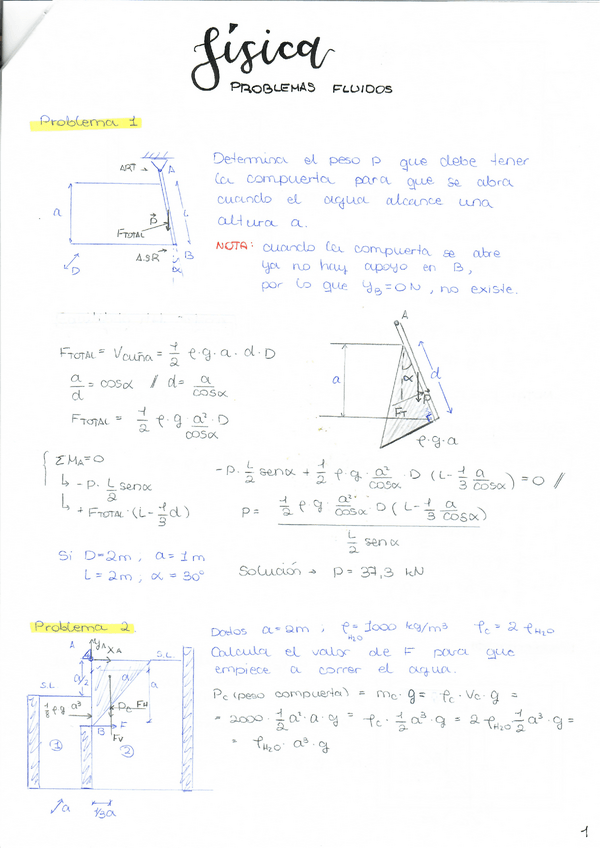 física
PROBLEMAS FLUIDOS
Problema 1
ART
A
a
L
P
FTOTAL
A.S.R
B
α
D
Determina el peso P que debe tener
la compuerta para que se abra
cuando el agua alcance una
altura a.
NOTA: cuando la compuerta se abre
ya no hay apoyo en B,
por lo que YB=0N, no existe.
FTOTAL = Vcuña = 1/2 ρ·g·a·d·D
a/d = cosα // d = a/cosα
FTOTAL = 1/2 ρ·g a²/cosα ·D
A
a
α
d
P
FT
ρ·g·a
ΣMA=0
↳ -P· L/2 senα
↳ + FTOTAL·(L-1/3d)
-P· L/2 senα + 1/2 ρ·g· a²/cosα ·D (L-1/3 a/cosα) = 0 //
P = (1/2 ρ·g· a²/cosα ·D (L-1/3 a/cosα)) / (L/2 senα)
Si D=2m, a=1m
L=2m, α=30°
Solución → P=37,3 kN
Problema 2.
A
YA
XA
S.L
S.L
a/2
a
1/8 ρg a³
Pc
FH
B
F
Fv
1
2
a
1/3a
Datos a=2m ; ρH2O=1000 kg/m³ ρc=2ρH2O
Calcula el valor de F para que
empiece a correr el agua.
Pc (peso compuerta) = mc·g = ρc·Vc·g =
= 2000·1/2a²·a·g = ρc·1/2a³·g = 2ρH2O 1/2a³·g =
= ρH2O·a³·g
1